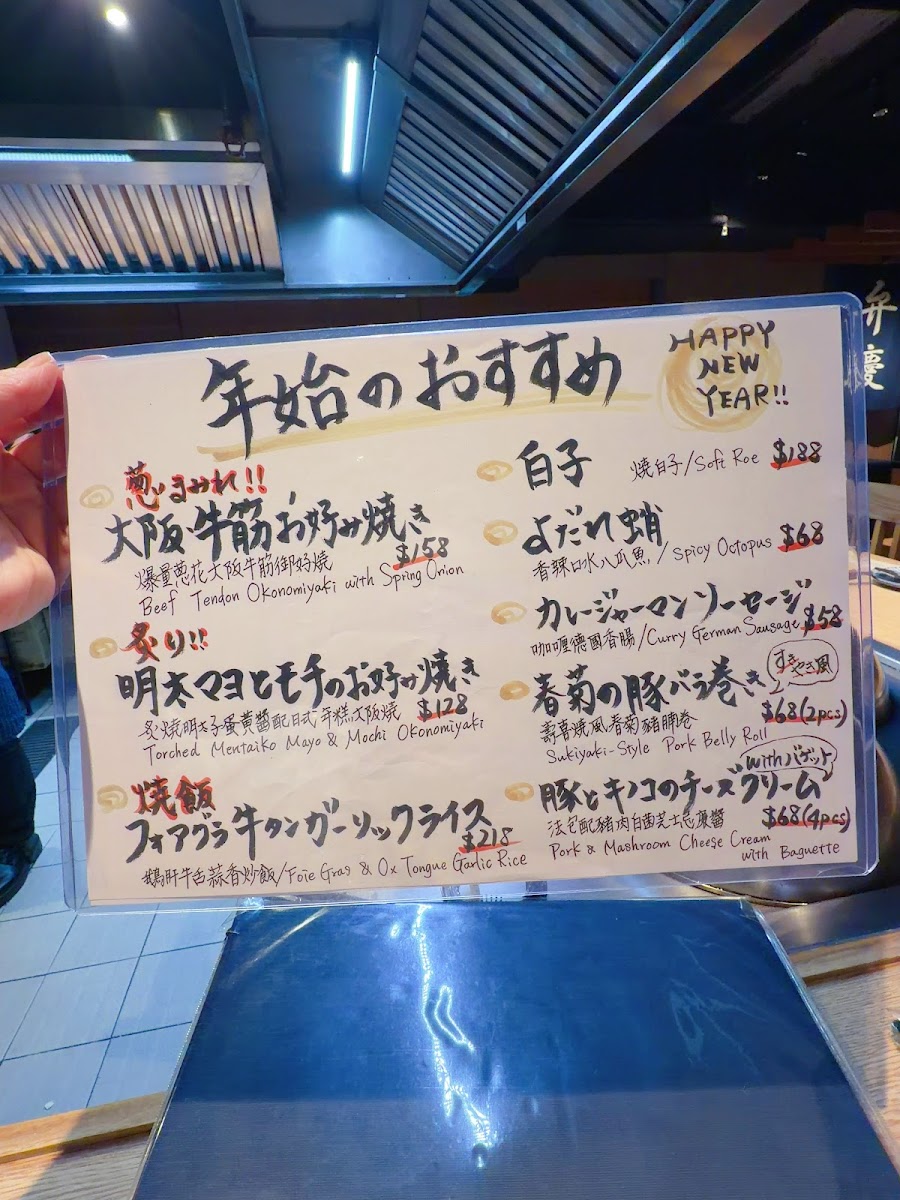 年始のおすすめ
HAPPY
NEW
YEAR!!
葱まみれ!!
大阪牛筋お好み焼き
$158
爆量葱花大阪牛筋御好燒
Beef Tendon Okonomiyaki with Spring Onion
炙り!!
明太マヨとモチのお好み焼き
$128
炙燒明太子蛋黃醬配日式年糕大阪燒
Torched Mentaiko Mayo & Mochi Okonomiyaki
焼飯
フォアグラ牛タンガーリックライス
$218
鵝肝牛舌蒜香炒飯/Foie Gras & Ox Tongue Garlic Rice
白子
燒白子/Soft Roe $188
よだれ蛸
香辣口水八爪魚/Spicy Octopus $68
カレージャーマンソーセージ
咖喱德國香腸/Curry German Sausage $58
春菊の豚バラ巻き
すきやき風
$68(2pcs)
壽喜燒風春菊豬腩卷
Sukiyaki-Style Pork Belly Roll
with バゲット
豚とキノコのチーズクリーム
$68(4pcs)
法包配豬肉白菌芝士忌廉醬
Pork & Mashroom Cheese Cream
with Baguette
弁慶